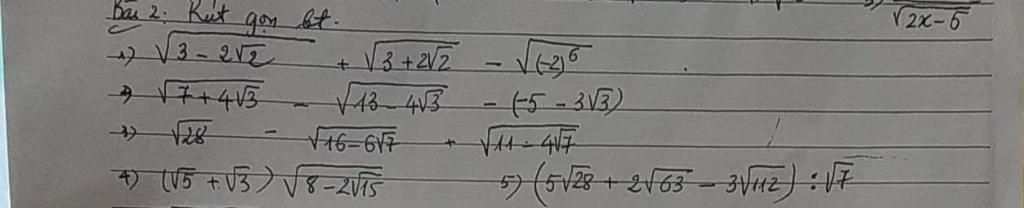 Bài 2: Rút gọn bt.
√(2x-6)
1) √(3 - 2√2) + √(3 + 2√2) - √((-2)⁶)
2) √(7 + 4√3) - √(13 - 4√3) - (-5 - 3√3)
3) √28 - √(16 - 6√7) + √(11 - 4√7)
4) (√5 + √3) √(8 - 2√15) 5) (5√28 + 2√63 - 3√112) : √7